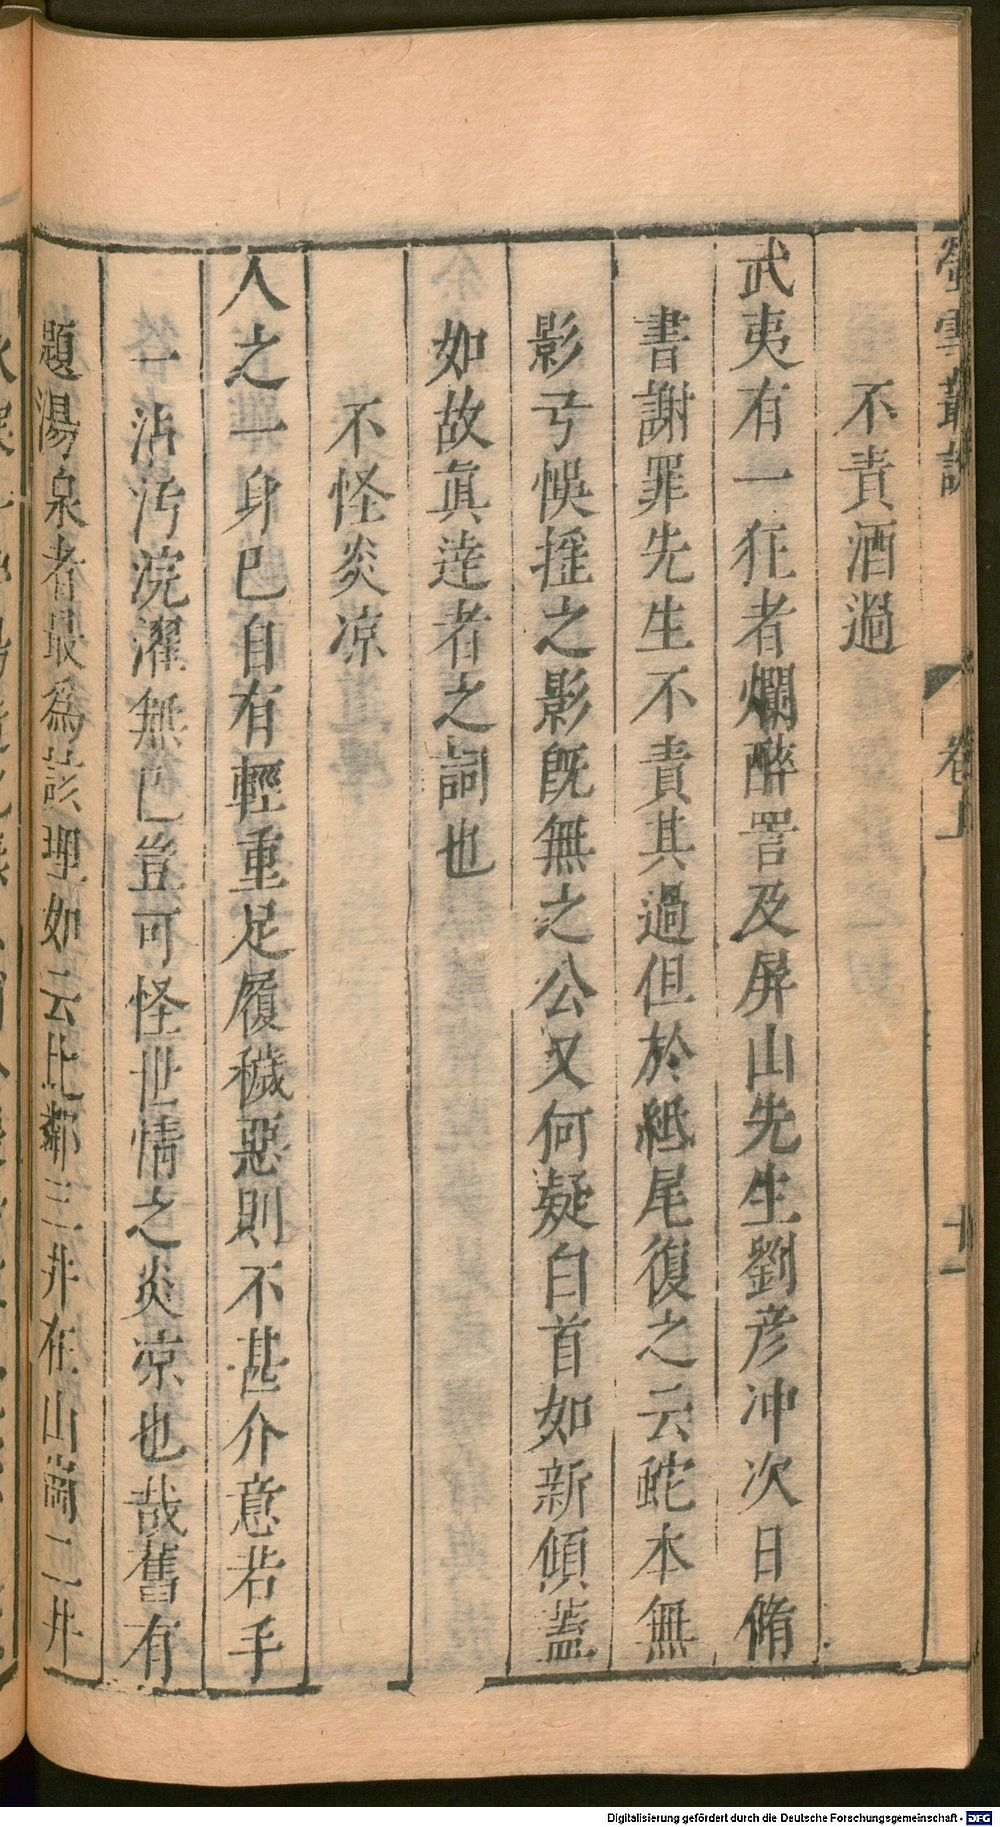 螢雪叢說
卷上
十一
不責酒過
武夷有一狂者爛醉詈及屏山先生劉彥冲次日脩
書謝罪先生不責其過但於紙尾復之云蛇本無
影弓悞揺之影旣無之公又何疑白首如新傾蓋
如故眞逹者之詞也
不怪炎凉
人之一身巳自有輕重足履穢惡則不甚介意若手
一沾汚浣濯無巳豈可怪世情之炎凉也哉舊有
題湯泉者最爲該理如云比鄰三井在山崗二井
Digitalisierung gefördert durch die Deutsche Forschungsgemeinschaft - DFG